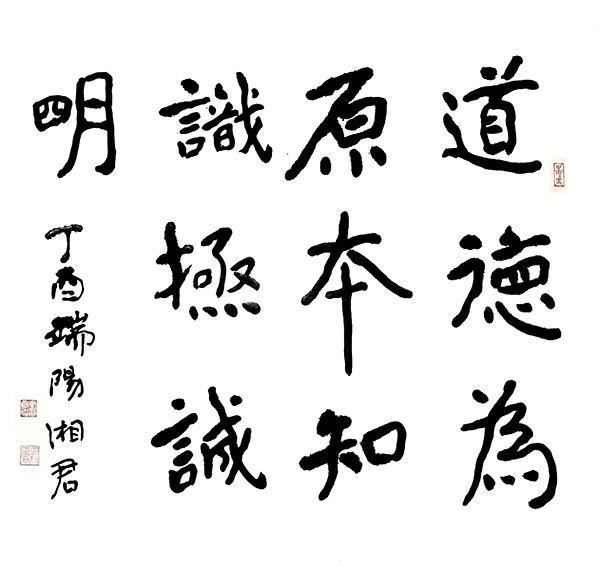 道德為
原本知
識極誠
明
丁酉端陽湘君